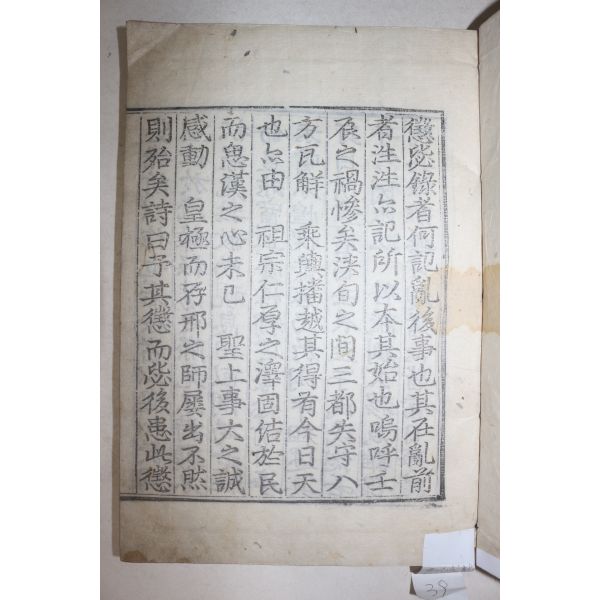 懲毖錄者何記亂後事也其在亂前
者徃徃亦記所以本其始也嗚呼壬
辰之禍慘矣浹旬之間三都失守八
方瓦解 乘輿播越其得有今日天
也亦由 祖宗仁厚之澤固結於民
而思漢之心未已 聖上事大之誠
感動 皇極而存邢之師屢出不然
則殆矣詩曰予其懲而毖後患此懲
39